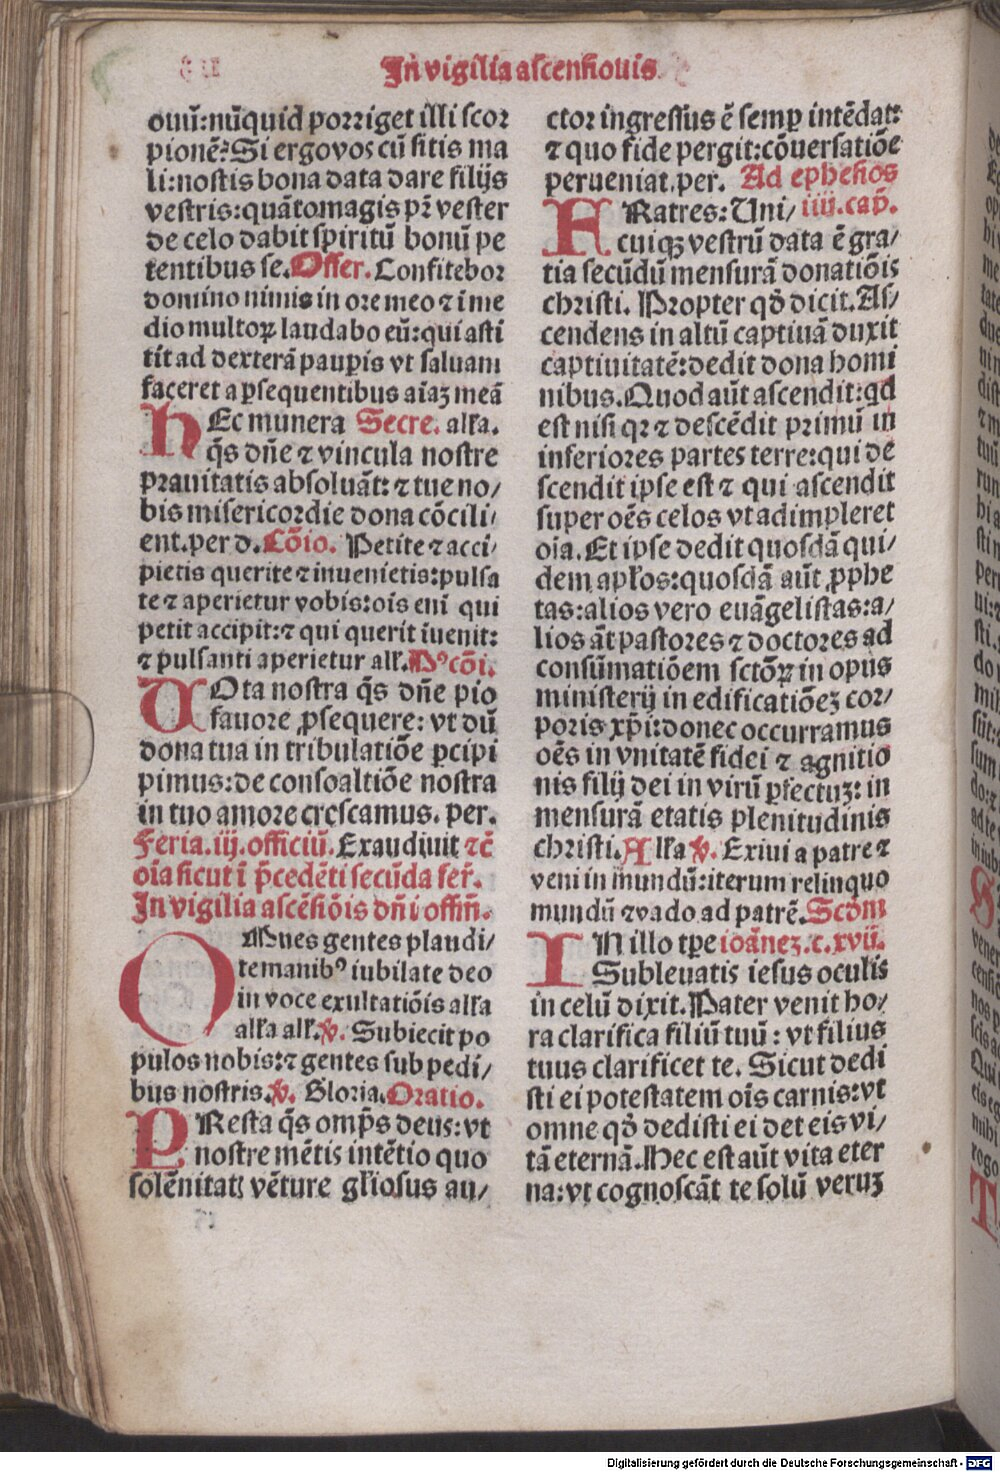 In vigilia ascensiouis
ouū:nūquid porriget illi scor
pionē? Si ergo vos cū sitis ma
li:nostis bona data dare filijs
vestris:quātomagis pr̄ vester
de celo dabit spiritū bonū pe
tentibus se. Offer. Confitebor
domino nimis in ore meo ⁊ ī me
dio multoꝝ laudabo eū:qui asti
tit ad dexterā paupis vt saluam
faceret a ꝑsequentibus aīaꝫ meā
HEc munera Secre. alľa.
q̄s dn̄e ⁊ vincula nostre
prauitatis absoluāt: ⁊ tue no/
bis misericordie dona cōcili/
ent.per d. Cōio. Petite ⁊ acci/
pietis querite ⁊ inuenietis:pulsa
te ⁊ aperietur vobis:ois eni qui
petit accipit:⁊ qui querit iuenit:
⁊ pulsanti aperietur alľ. Pꝰcōi.
VOta nostra q̄s dn̄e pio
fauore ꝓsequere: vt dū
dona tua in tribulatiōe ꝑcipi
pimus:de consoaltiōe nostra
in tuo amore crescamus. per.
Feria.iij.officiū. Exaudiuit ⁊c̄
oīa sicut ī p̄cedēti secūda fer̄.
In vigilia ascēsiōis dn̄i offm̄.
OMnes gentes plaudi/
te manibꝰ iubilate deo
in voce exultatiōis alľa
alľa alľ. ℣. Subiecit po
pulos nobis:⁊ gentes sub pedi/
bus nostris. ℣. Gloria. Oratio.
PResta q̄s omp̄s deus: vt
nostre mētis intētio quo
solēnitatꝭ vēture gľiosus au/
ctor ingressus ē semꝑ intēdat:
⁊ quo fide pergit:cōuersatiōe
perueniat.per. Ad ephesios
FRatres: Uni/ iiij.cap̄.
cuiqꝫ vestrū data ē gra/
tia secūdū mensurā donatiōis
christi. Propter qď dicit. As/
cendens in altū captiuā duxit
captiuitatē:dedit dona homi
nibus. Quod aūt ascendit:qd
est nisi qꝛ ⁊ descēdit primū in
inferiores partes terre:qui de
scendit ipse est ⁊ qui ascendit
super oēs celos vt adimpleret
oīa. Et ipse dedit quosdā qui/
dem apľos:quosdā aūt ꝓphe
tas:alios vero euāgelistas:a/
lios āt pastores ⁊ doctores ad
consūmatiōem sctōꝝ in opus
ministerij in edificatiōeꝫ cor/
poris xp̄i:donec occurramus
oēs in vnitatē fidei ⁊ agnitio
nis filij dei in virū ꝑfectuꝫ: in
mensurā etatis plenitudinis
christi. Alľa ℣. Exiui a patre ⁊
veni in mundū:iterum relinquo
mundū ⁊ vado ad patrē. Scḋm
IN illo tꝑe ioānez.c.xvij.
Subleuatis iesus oculis
in celū dixit. Pater venit ho/
ra clarifica filiū tuū : vt filius
tuus clarificet te. Sicut dedi
sti ei potestatem oīs carnis:vt
omne qď dedisti ei det eis vi/
tā eternā. Hec est aūt vita eter
na:vt cognoscāt te solū veruꝫ
Digitalisierung gefördert durch die Deutsche Forschungsgemeinschaft - DFG